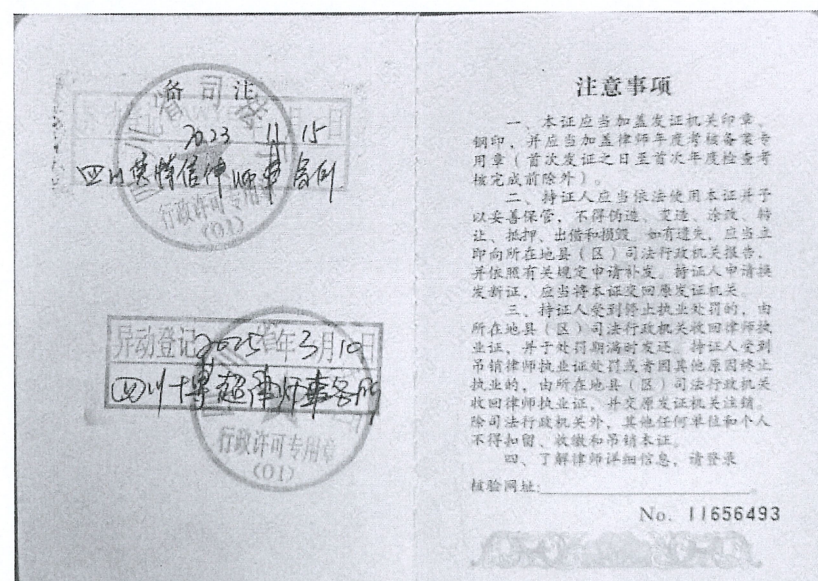 备注
2023 11 15
四川 信律师事务所
四川省司法厅
行政许可专用章
(01)
异动登记2025年3月10日
四川 律师事务所
行政许可专用章
(01)
注意事项
一、本证应当加盖发证机关印章、
钢印，并应当加盖律师年度考核备案专
用章（首次发证之日至首次年度检查考
核完成前除外）。
二、持证人应当依法使用本证并予
以妥善保管，不得伪造、变造、涂改、转
让、抵押、出借和损毁。如有遗失，应当立
即向所在地县（区）司法行政机关报告，
并依照有关规定申请补发。持证人申请换
发新证，应当将本证交回原发证机关。
三、持证人受到停止执业处罚的，由
所在地县（区）司法行政机关收回律师执
业证，并于处罚期满时发还。持证人受到
吊销律师执业证处罚或者因其他原因终止
执业的，由所在地县（区）司法行政机关
收回律师执业证，并交原发证机关注销。
除司法行政机关外，其他任何单位和个人
不得扣留、收缴和吊销本证。
四、了解律师详细信息，请登录
核验网址：
No. 11656493